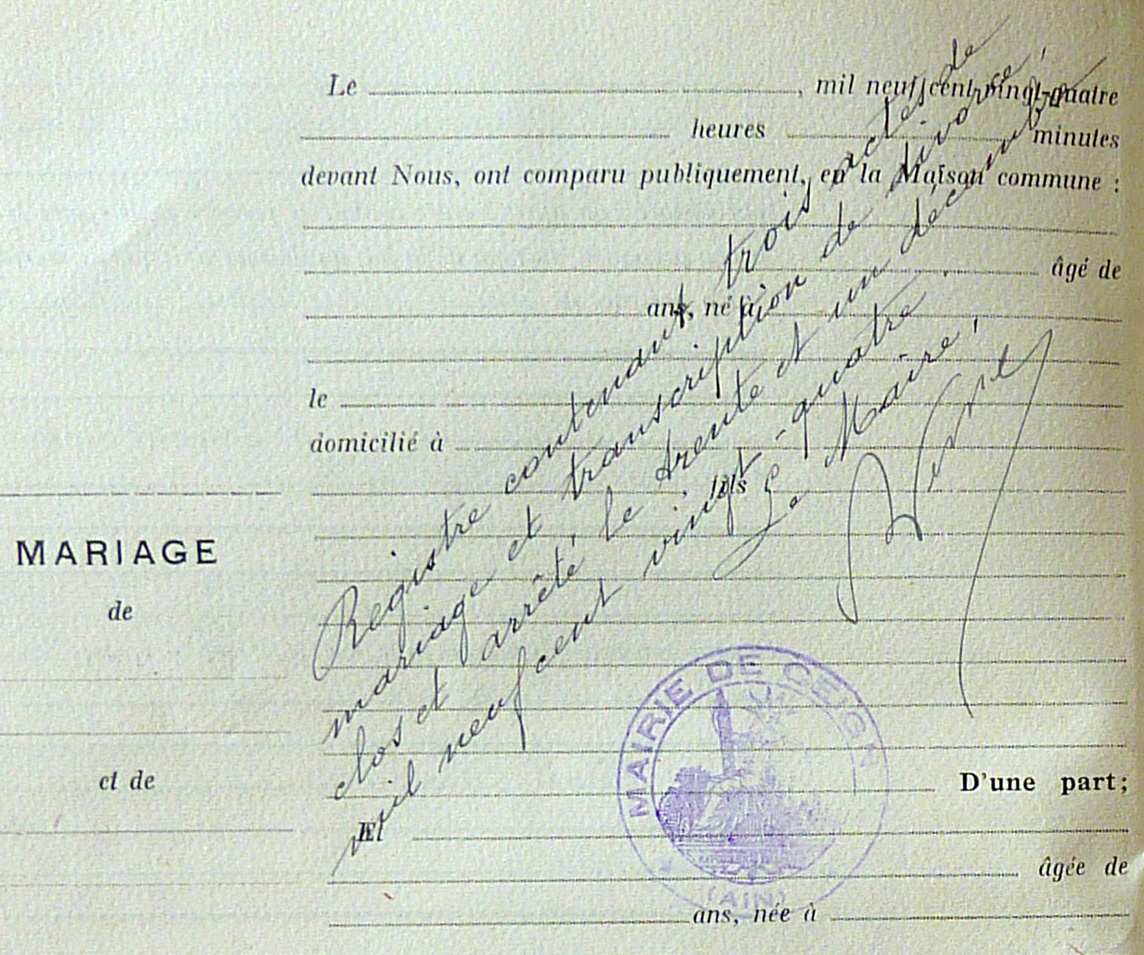 Le , mil neuf cent vingt-quatre
heures minutes
devant Nous, ont comparu publiquement, en la Maison commune :
âgé de
ans, né à
le
domicilié à
fils
MARIAGE
de
et de
D'une part;
Et
âgée de
ans, née à
Registre contenant trois actes de
mariage et transcription de divorce,
clos et arrêté le trente et un décembre
mil neuf cent vingt-quatre.
Le Maire,
MAIRIE DE
(AIN)